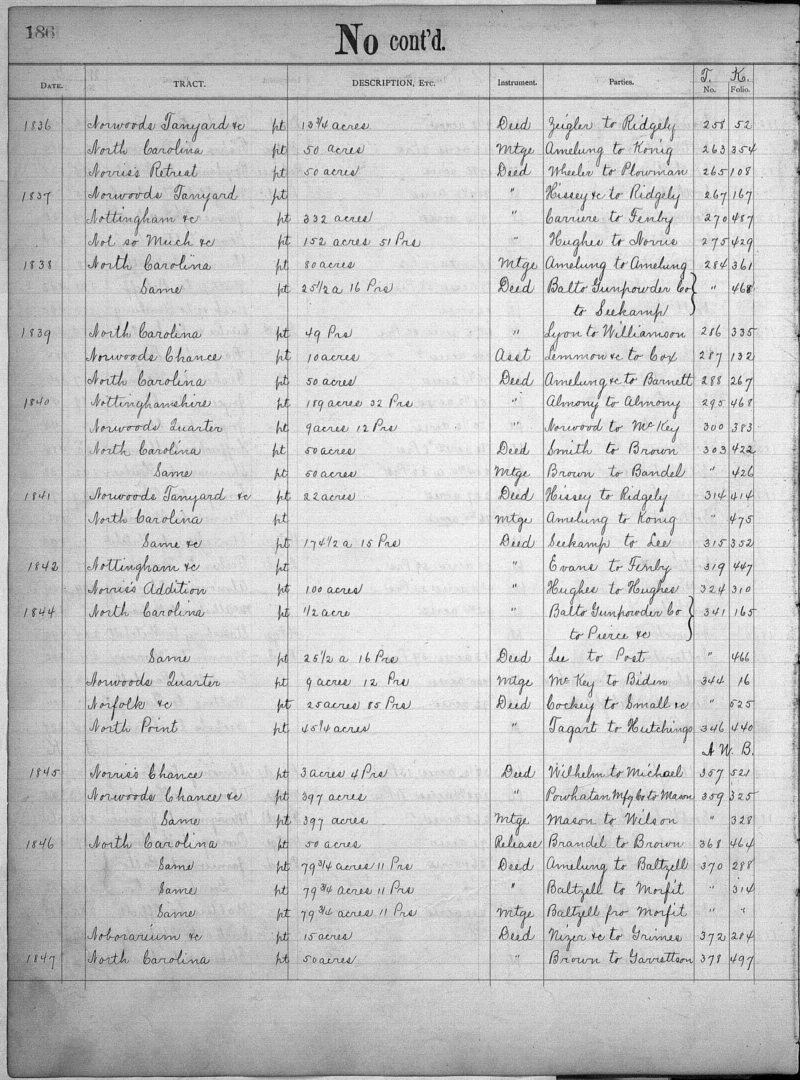 186
No cont'd.
T. K.
DATE. TRACT. DESCRIPTION, ETC. Instrument. Parties. No. Folio.
1836 Norwoods Tanyard &c pt 13 3/4 acres Deed Zeigler to Ridgely 258 52
North Carolina pt 50 acres Mtge Amelung to Konig 263 354
Norris's Retreat pt 50 acres Deed Wheeler to Plowman 265 108
1837 Norwoods Tanyard pt " Hissey &c to Ridgely 267 167
Nottingham &c pt 332 acres " Carriere to Fenby 270 487
Not so Much &c pt 152 acres 51 Prs " Hughes to Norris 275 429
1838 North Carolina pt 80 acres Mtge Amelung to Amelung 284 361
Same pt 25 1/2 a 16 Prs Deed Balto Gunpowder Co } " 468
to Seekamp
1839 North Carolina pt 49 Prs " Lyon to Williamson 286 335
Norwoods Chance pt 10 acres Asst Lemmon &c to Cox 287 132
North Carolina pt 50 acres Deed Amelung &c to Barnett 288 267
1840 Nottinghamshire pt 189 acres 32 Prs " Almony to Almony 295 468
Norwoods Quarter pt 9 acres 12 Prs " Norwood to McKey 300 383
North Carolina pt 50 acres Deed Smith to Brown 303 422
Same pt 50 acres Mtge Brown to Bandel " 426
1841 Norwoods Tanyard &c pt 22 acres Deed Hissey to Ridgely 314 414
North Carolina pt Mtge Amelung to Konig " 475
Same &c pt 174 1/2 a 15 Prs Deed Seekamp to Lee 315 352
1842 Nottingham &c pt " Evans to Fenby 319 447
Norris's Addition pt 100 acres " Hughes to Hughes 324 310
1844 North Carolina pt 1/2 acre " Balto Gunpowder Co } 341 165
to Pierce &c
Same pt 25 1/2 a 16 Prs Deed Lee to Post " 466
Norwoods Quarter pt 9 acres 12 Prs Mtge McKey to Biden 344 16
Norfolk &c pt 25 acres 85 Prs Deed Cockey to Small &c " 525
North Point pt 45 1/4 acres " Tagart to Hutchings 346 440
A. W. B.
1845 Norris's Chance pt 3 acres 4 Prs Deed Wilhelm to Michael 357 521
Norwoods Chance &c pt 397 acres " Powhatan Mfg Co to Mason 359 325
Same pt 397 acres Mtge Mason to Wilson " 328
1846 North Carolina pt 50 acres Release Brandel to Brown 368 464
Same pt 79 3/4 acres 11 Prs Deed Amelung to Baltzell 370 288
Same pt 79 3/4 acres 11 Prs " Baltzell to Morfit " 314
Same pt 79 3/4 acres 11 Prs Mtge Baltzell fro Morfit " "
Noborarium &c pt 15 acres Deed Nizer &c to Grimes 372 284
1847 North Carolina pt 50 acres " Brown to Garrettson 378 497